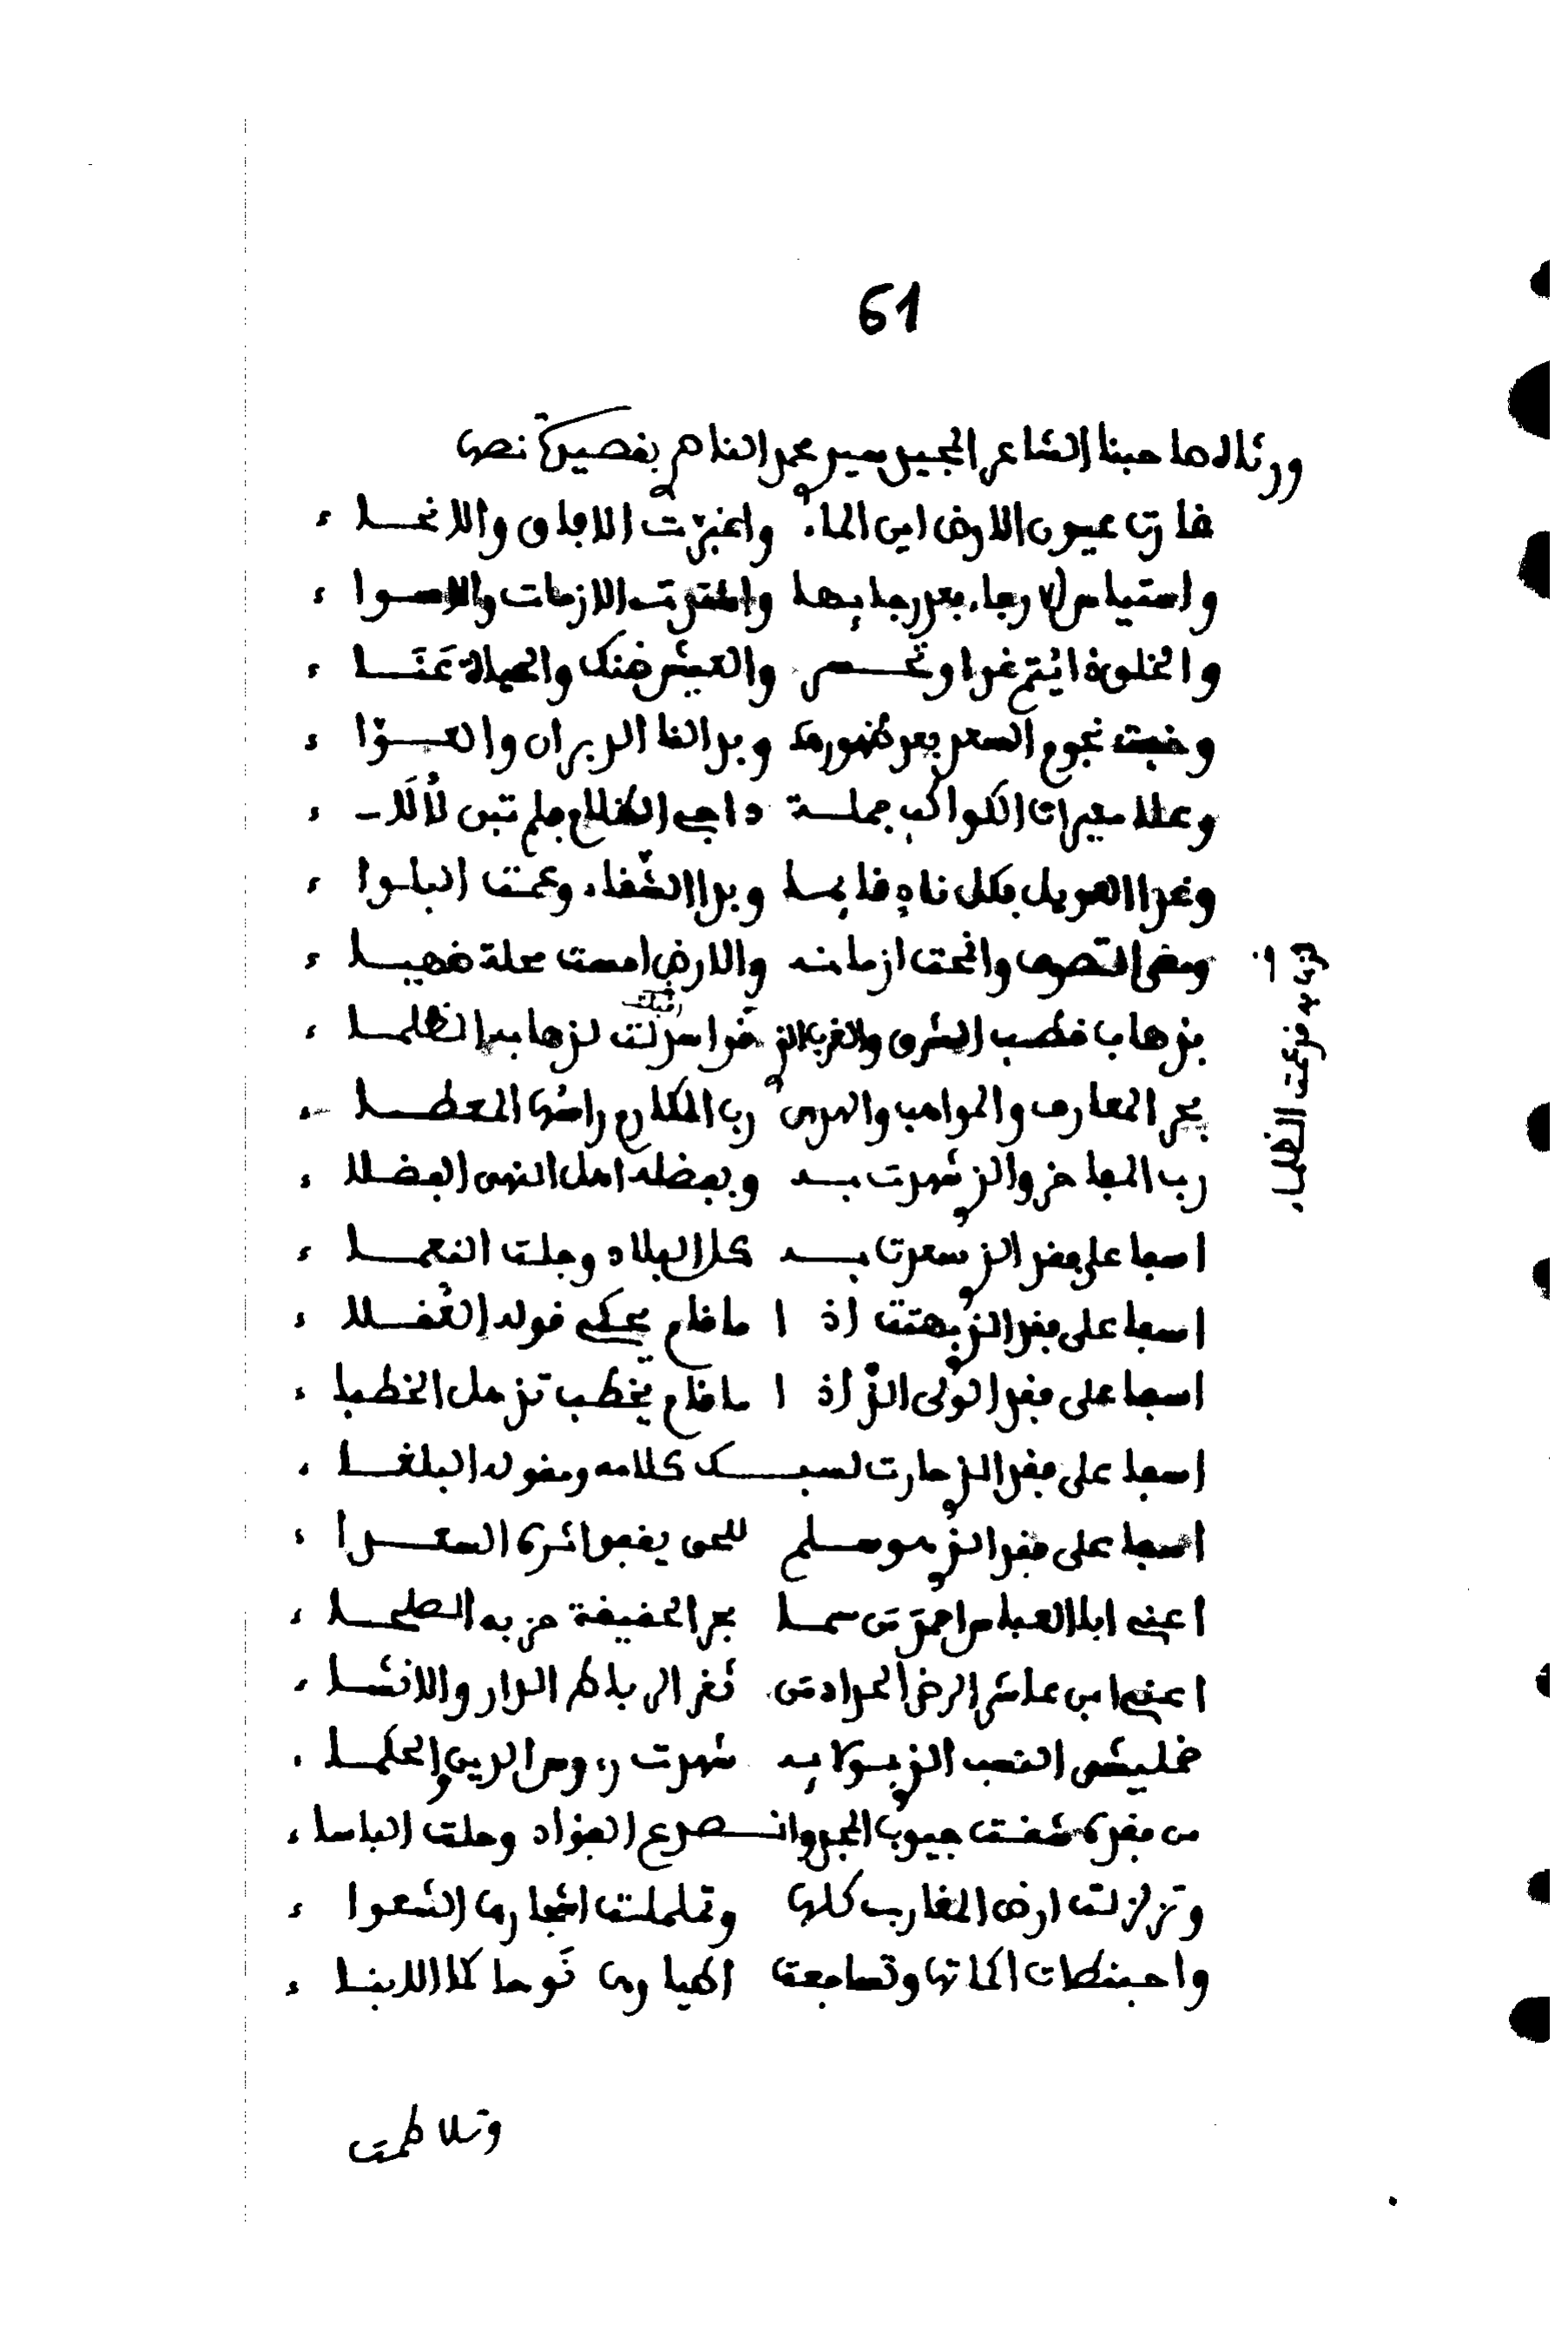 61
ورثاه صاحبنا الشاعر المجيد سيد محمد الناصر بقصيدة نصها
غارت عيون الارض اين الماء واغبرت الافاق والانحاء
واستياس الارجاء بعد رجايها واشتدت الازمات والاسواء
والخلق في ايتم غدا وتحسر والعيش ضنك والحياة عناء
وخبت نجوم السعد بعد ظهورها وبدا لنا الدبران والعواء
وعلا نيرات الكواكب جملة داجي الظلام فلم تبن لألاء
وغدا العويل بكل ناد قايما وبدا الشقاء وعمت البلواء
ومضى التصوف وانمحت ازمانه والارض امست محلة غهباء
بذهاب قطب الشرق والغرب الذي نزلت لذهابه الظلماء
بحر المعارف والمواهب والهدى رب المكارم راشها المعطاء
رب المفاخر والذي شهدت به وبفضله اهل النهى الفضلاء
اسفا على فقد الذي سعدت به كل البلاد وجلت النعماء
اسفا على فقد الذي بهتت اذا ما قام يحكي قوله العقلاء
اسفا على فقد الولي الذي اذا ما قام يخطب تذهل الخطباء
اسفا على فقد الذي حارت لسبك كلامه ومقوله البلغاء
اسفا على فقد الذي هو مسلم للحق يقفو اثره السعداء
اعني ابا العباس احمد من سما بحر الحقيقة حزبه الصلحاء
اعني ابن عاشر الرضى الحداد من ثغر الرباط الدار والانشاء
خمليشي النسب الذي بولائه شهدت رءوس الدين والحكماء
من فقده شقت جيوب المجد وانصدع الفؤاد وحلت الباساء
وتزلزلت ارض المغارب كلها وتململت اشجارها الشعواء
واحبنطات اكماتها وتسامعت اطيارها نوحا كما الابناء
وتلاطمت